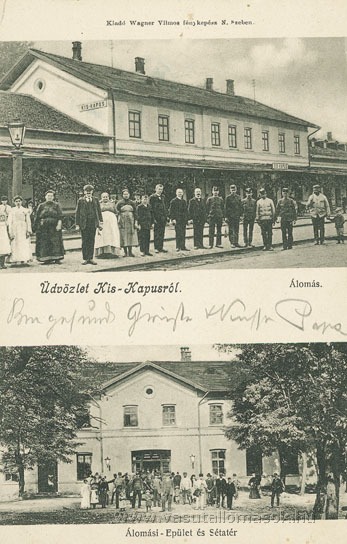 Kiadó Wagner Vilmos fényképész N. Szeben.
KIS-KAPUS
Üdvözlet Kis-Kapusról.
Álomás.
Bin gesund Grüsse + Küsse Papa
Álomási-Epület és Sétatér
www.vasutallomasok.hu